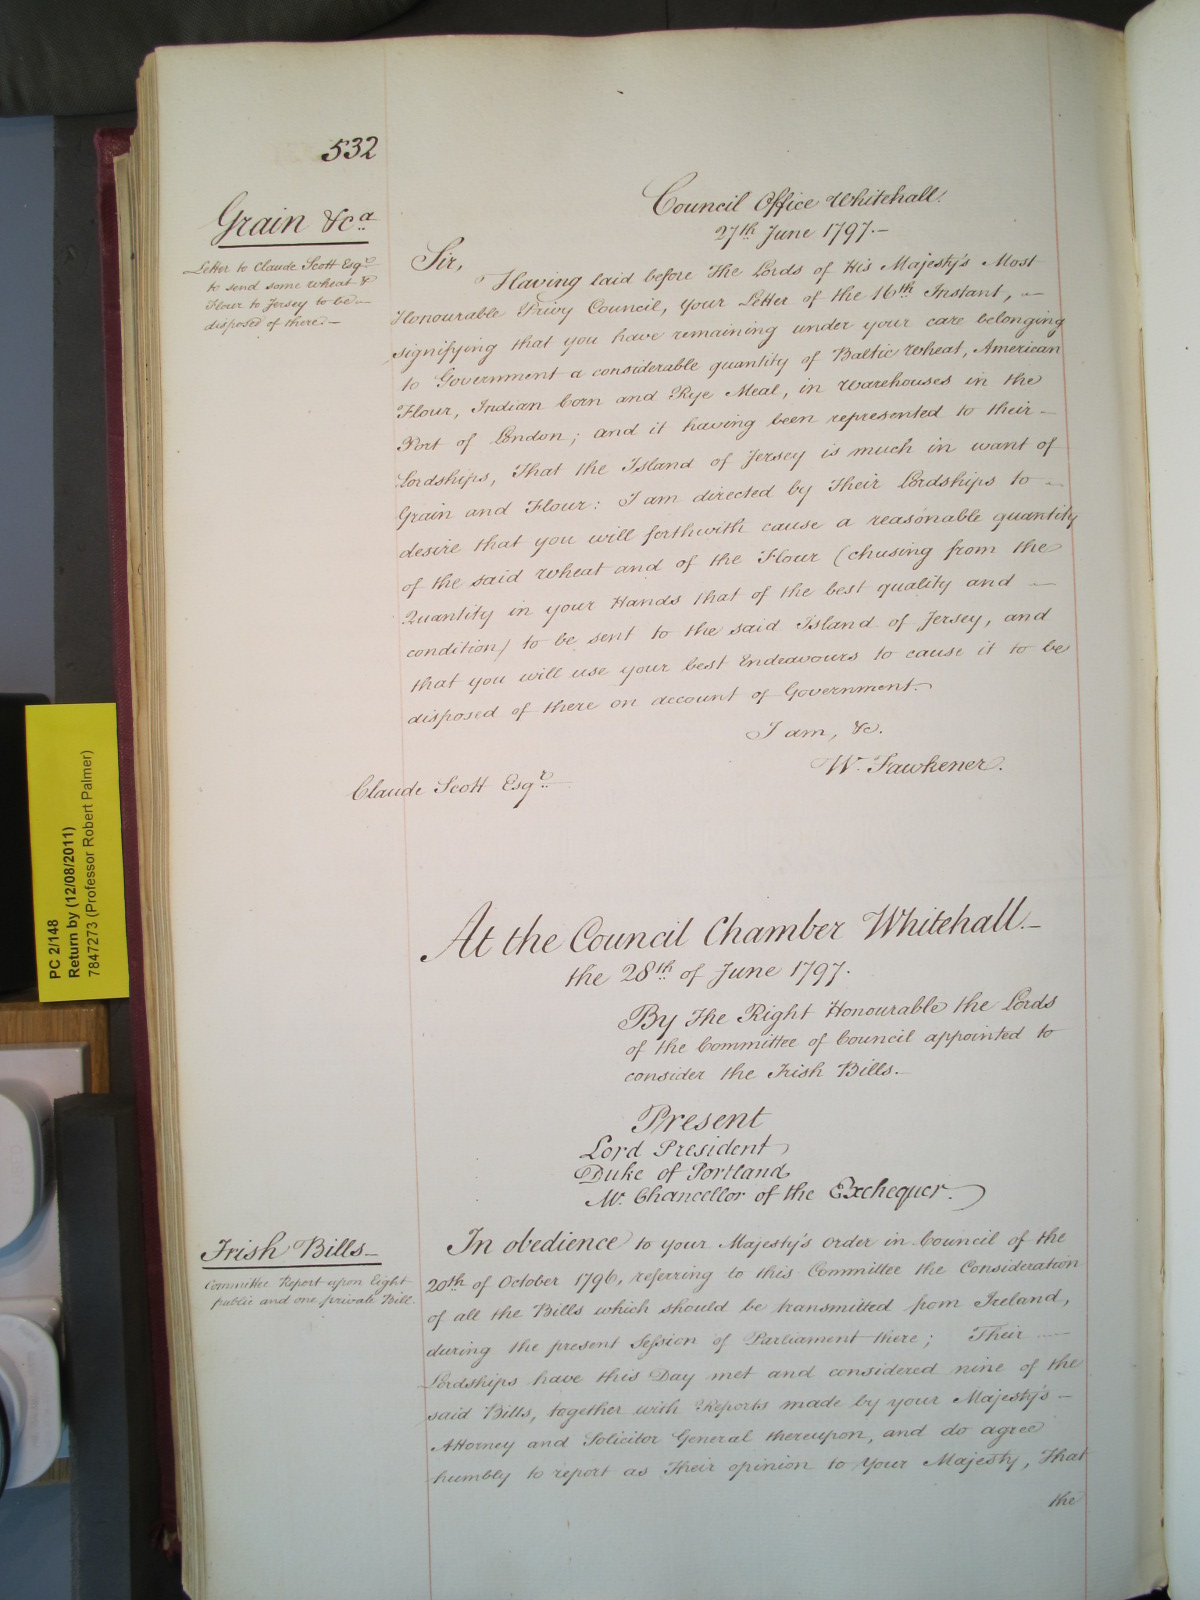 532
Grain &c.a
Letter to Claude Scott Esq.r
to send some Wheat &
Flour to Jersey to be
disposed of there.
Council Office Whitehall.
27th June 1797.
Sir,
Having laid before The Lords of His Majesty's Most
Honourable Privy Council, your Letter of the 16th Instant,
signifying that you have remaining under your care belonging
to Government a considerable quantity of Baltic Wheat, American
Flour, Indian Corn and Rye Meal, in Warehouses in the
Port of London; and it having been represented to their
Lordships, That the Island of Jersey is much in want of
Grain and Flour: I am directed by Their Lordships to
desire that you will forthwith cause a reasonable quantity
of the said Wheat and of the Flour (chusing from the
Quantity in your Hands that of the best quality and
condition) to be sent to the said Island of Jersey, and
that you will use your best Endeavours to cause it to be
disposed of there on account of Government.
I am, &c.
W. Fawkener.
Claude Scott Esq.r
At the Council Chamber Whitehall.
the 28th of June 1797.
By The Right Honourable the Lords
of the Committee of Council appointed to
consider the Irish Bills.
Present
Lord President
Duke of Portland
Mr. Chancellor of the Exchequer.
Irish Bills
Committee Report upon Eight
public and one private Bill.
In obedience to your Majesty's Order in Council of the
20th of October 1796, referring to this Committee the Consideration
of all the Bills which should be transmitted from Ireland,
during the present Session of Parliament there; Their
Lordships have this Day met and considered nine of the
said Bills, together with Reports made by your Majesty's
Attorney and Solicitor General thereupon, and do agree
humbly to report as Their opinion to Your Majesty, That
the
PC 2/148
Return by (12/08/2011)
7847273 (Professor Robert Palmer)